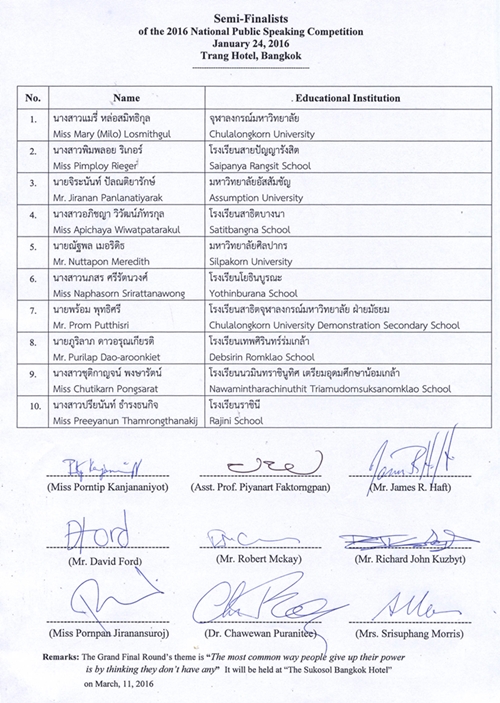 Semi-Finalists
of the 2016 National Public Speaking Competition
January 24, 2016
Trang Hotel, Bangkok
No. Name Educational Institution
1. นางสาวแมรี่ หล่อสมิทธิกุล จุฬาลงกรณ์มหาวิทยาลัย
Miss Mary (Milo) Losmithgul Chulalongkorn University
2. นางสาวพิมพลอย ริเกอร์ โรงเรียนสายปัญญารังสิต
Miss Pimploy Rieger Saipanya Rangsit School
3. นายจิระนันท์ ปัลณติยารักษ์ มหาวิทยาลัยอัสสัมชัญ
Mr. Jiranan Panlanatiyarak Assumption University
4. นางสาวอภิชญา วิวัฒน์ภัทรกุล โรงเรียนสาธิตบางนา
Miss Apichaya Wiwatpatarakul Satitbangna School
5. นายณัฐพล เมอริดิธ มหาวิทยาลัยศิลปากร
Mr. Nuttapon Meredith Silpakorn University
6. นางสาวนภสร ศรีรัตนวงศ์ โรงเรียนโยธินบูรณะ
Miss Naphasorn Srirattanawong Yothinburana School
7. นายพร้อม พุทธิศรี โรงเรียนสาธิตจุฬาลงกรณ์มหาวิทยาลัย ฝ่ายมัธยม
Mr. Prom Putthisri Chulalongkorn University Demonstration Secondary School
8. นายภูริลาภ ดาวอรุณเกียรติ โรงเรียนเทพศิรินทร์ร่มเกล้า
Mr. Purilap Dao-aroonkiet Debsirin Romklao School
9. นางสาวชุติกาญจน์ พงษารัตน์ โรงเรียนนวมินทราชินูทิศ เตรียมอุดมศึกษาน้อมเกล้า
Miss Chutikarn Pongsarat Nawamintharachinuthit Triamudomsuksanomklao School
10. นางสาวปรียนันท์ ธำรงธนกิจ โรงเรียนราชินี
Miss Preeyanun Thamrongthanakij Rajini School
(Miss Porntip Kanjananiyot) (Asst. Prof. Piyanart Faktorngpan) (Mr. James R. Haft)
(Mr. David Ford) (Mr. Robert Mckay) (Mr. Richard John Kuzbyt)
(Miss Pornpan Jiranansuroj) (Dr. Chawewan Puranitee) (Mrs. Srisuphang Morris)
Remarks: The Grand Final Round's theme is "The most common way people give up their power
is by thinking they don't have any" It will be held at "The Sukosol Bangkok Hotel"
on March, 11, 2016